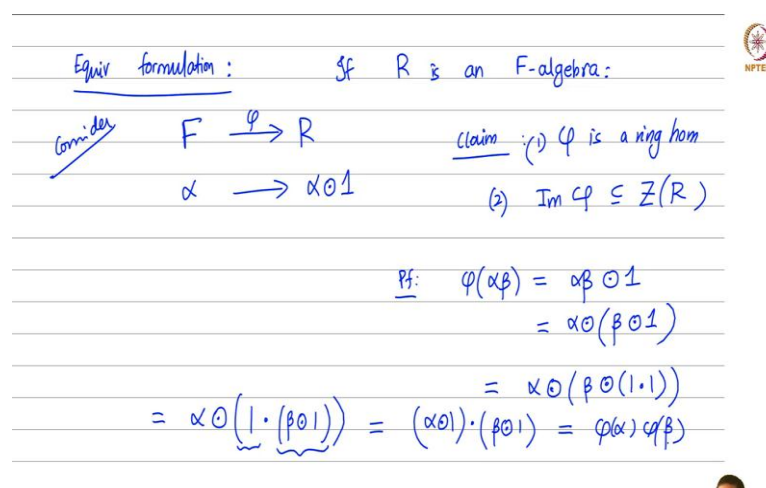 Equiv formulation : If R is an F-algebra:
Consider F —φ→ R Claim : (1) φ is a ring hom
α ⟶ α⊙1 (2) Im φ ⊆ Z(R)
Pf: φ(αβ) = αβ ⊙ 1
= α⊙(β⊙1)
= α⊙(β⊙(1·1))
= α⊙(1·(β⊙1)) = (α⊙1)·(β⊙1) = φ(α) φ(β)
NPTE